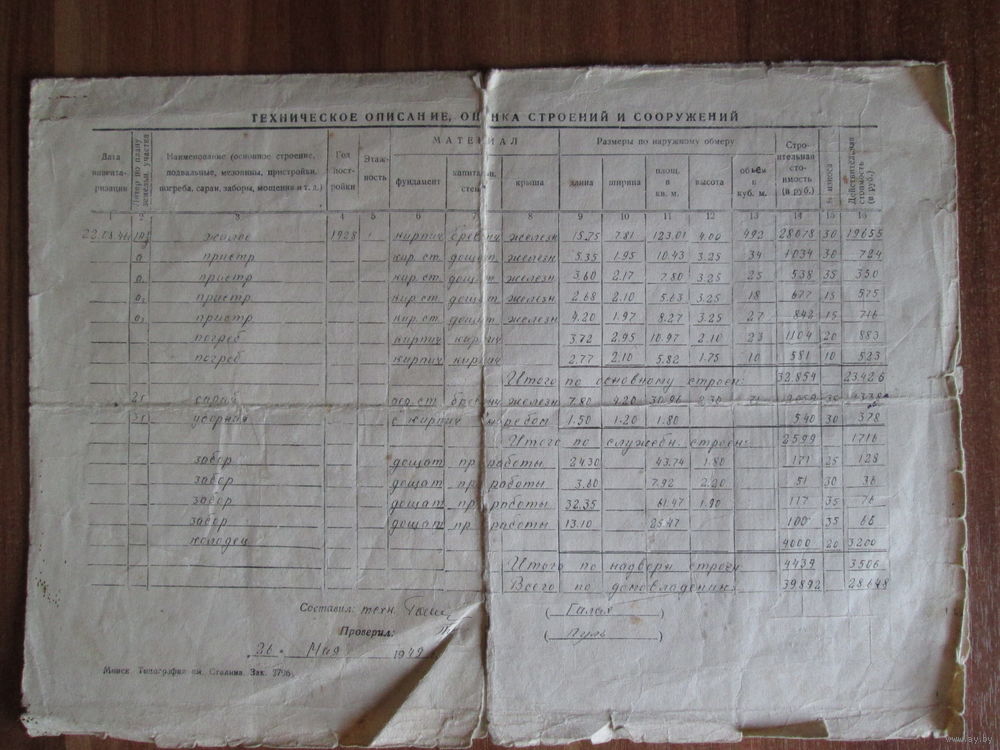 ТЕХНИЧЕСКОЕ ОПИСАНИЕ, ОЦЕНКА СТРОЕНИЙ И СООРУЖЕНИЙ
Дата инвентаризации Литер по плану земельн. участка Наименование (основное строение, подвальные, мезонины, пристройки, погреба, сараи, заборы, мощения и т. д.) Год постройки Этажность МАТЕРИАЛ фундамент капитальн. стен крыша Размеры по наружному обмеру длина ширина площ. в кв. м. высота объем в куб. м. Строительная стоимость (в руб.) % износа Действительная стоимость (в руб.)
1 2 3 4 5 6 7 8 9 10 11 12 13 14 15 16
жилое 1928 кирпич бревно железн 15.75 7.81 123.01 4.00 492 28078 30 19655
пристр кир. ст. дощат железн 5.35 1.95 10.43 3.25 34 1034 30 724
пристр кир. ст. дощат железн 3.60 2.17 7.80 3.25 25 538 35 350
пристр кир. ст. дощат железн 2.68 2.10 5.63 3.25 18 677 15 575
пристр кир. ст. дощат железн 4.20 1.97 8.27 3.25 27 842 15 716
погреб кирпич кирпич 3.72 2.95 10.97 2.10 23 1104 20 883
погреб кирпич кирпич 2.77 2.10 5.82 1.75 10 581 10 523
Итого по основному строен: 32.854 23426
сарай железн 7.80 4.20 30
уборная 1.50 1.20 1.80 540 30 378
Итого по служебн. строен: 2599 1716
забор дощат пр работы 24.30 43.74 1.80 171 25 128
забор дощат пр работы 3.60 7.92 2.20 51 30 36
забор дощат пр работы 32.35 61.47 1.90 117 35 76
забор дощат пр работы 13.10 25.47 100 35 66
колодец 4000 20 3200
Итого по надворн строен: 4439 3506
Всего по домовладению: 39892 28.648
Составил: техн. (Галах)
Проверил: (Пуль)
26 Мая 1949
Минск. Типография им. Сталина. Зак. 2796.
www.ay.by